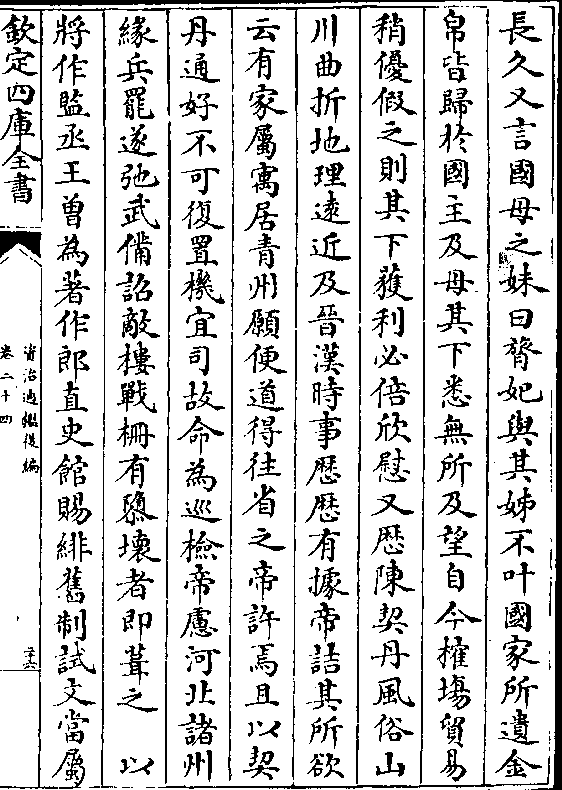 長久又言國母之妹曰胥妃與其姊不叶國家所遺金
帛皆歸於國主及母其下悉無所及望自今搉塲貿易
稍優假之則其下獲利必倍欣慰又歴陳契丹風俗山
川曲折地理遠近及晉漢時事歴歴有據帝詰其所欲
云有家屬寓居青州願便道得往省之帝許焉且以契
丹通好不可復置機宜司故命為巡檢帝慮河北諸州
緣兵罷遂弛武備詔敵樓戰柵有隳壊者即葺之 以
將作監丞王曽為著作郎直史館賜緋舊制試文當屬
欽定四庫全書
資治通鑑後編
卷二十四
二十六